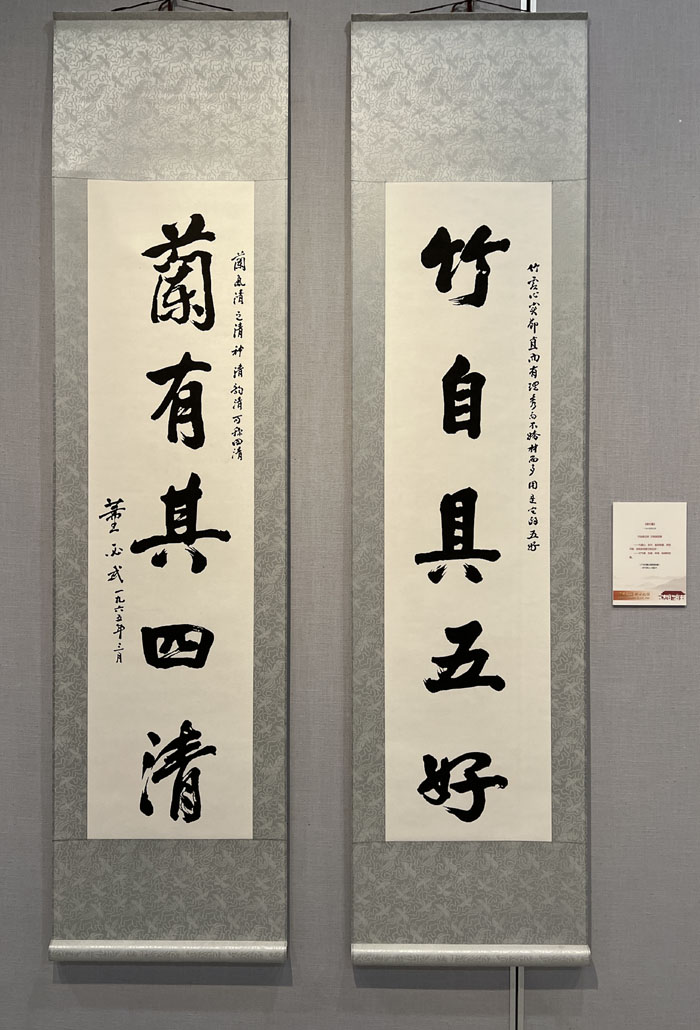 竹虚心实節直而有理秀而不嬌材而多用是它的五好
竹自具五好
蘭氣清色清神清韵清可称四清
蘭有其四清
董必武一九六五年三月